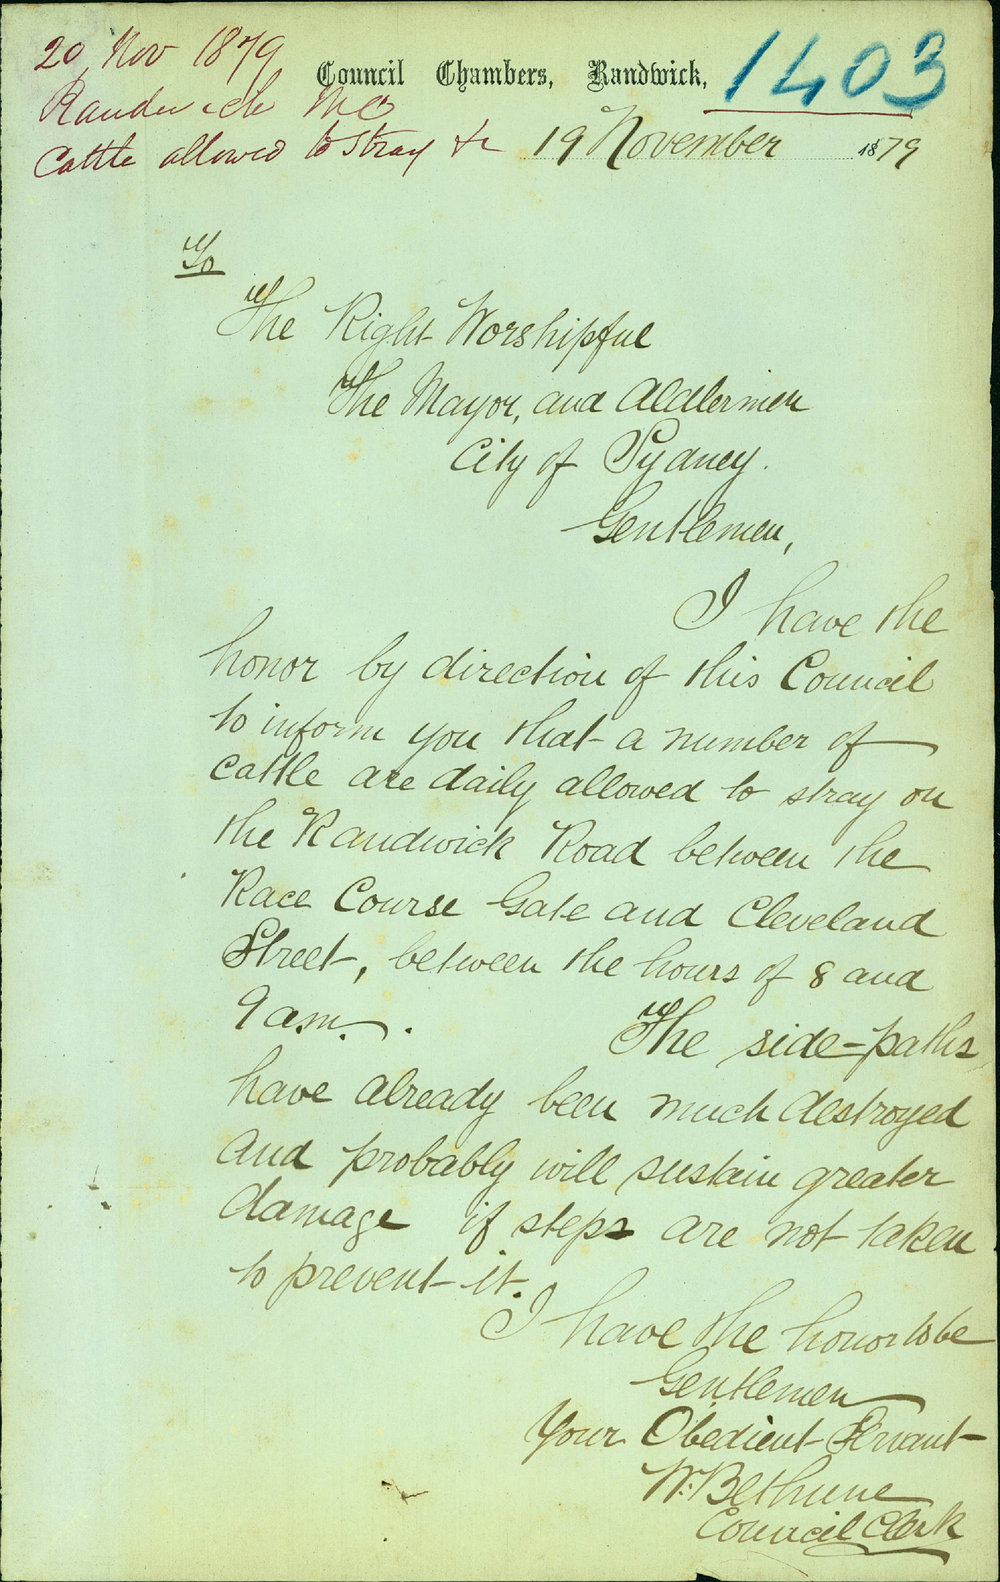 20 Nov 1879
Randwick MC
Cattle allowed to stray &c
Council Chambers, Randwick,
1403
19 November 1879
To
The Right Worshipful
The Mayor, and Aldermen
City of Sydney.
Gentlemen,
I have the
honor by direction of this Council
to inform you that a number of
cattle are daily allowed to stray on
the Randwick Road between the
Race Course Gate and Cleveland
Street, between the hours of 8 and
9 am.
The side-paths
have already been much destroyed
and probably will sustain greater
damage if steps are not taken
to prevent it.
I have the honor to be
Gentlemen
Your Obedient Servant
W. Bethune
Council Clerk